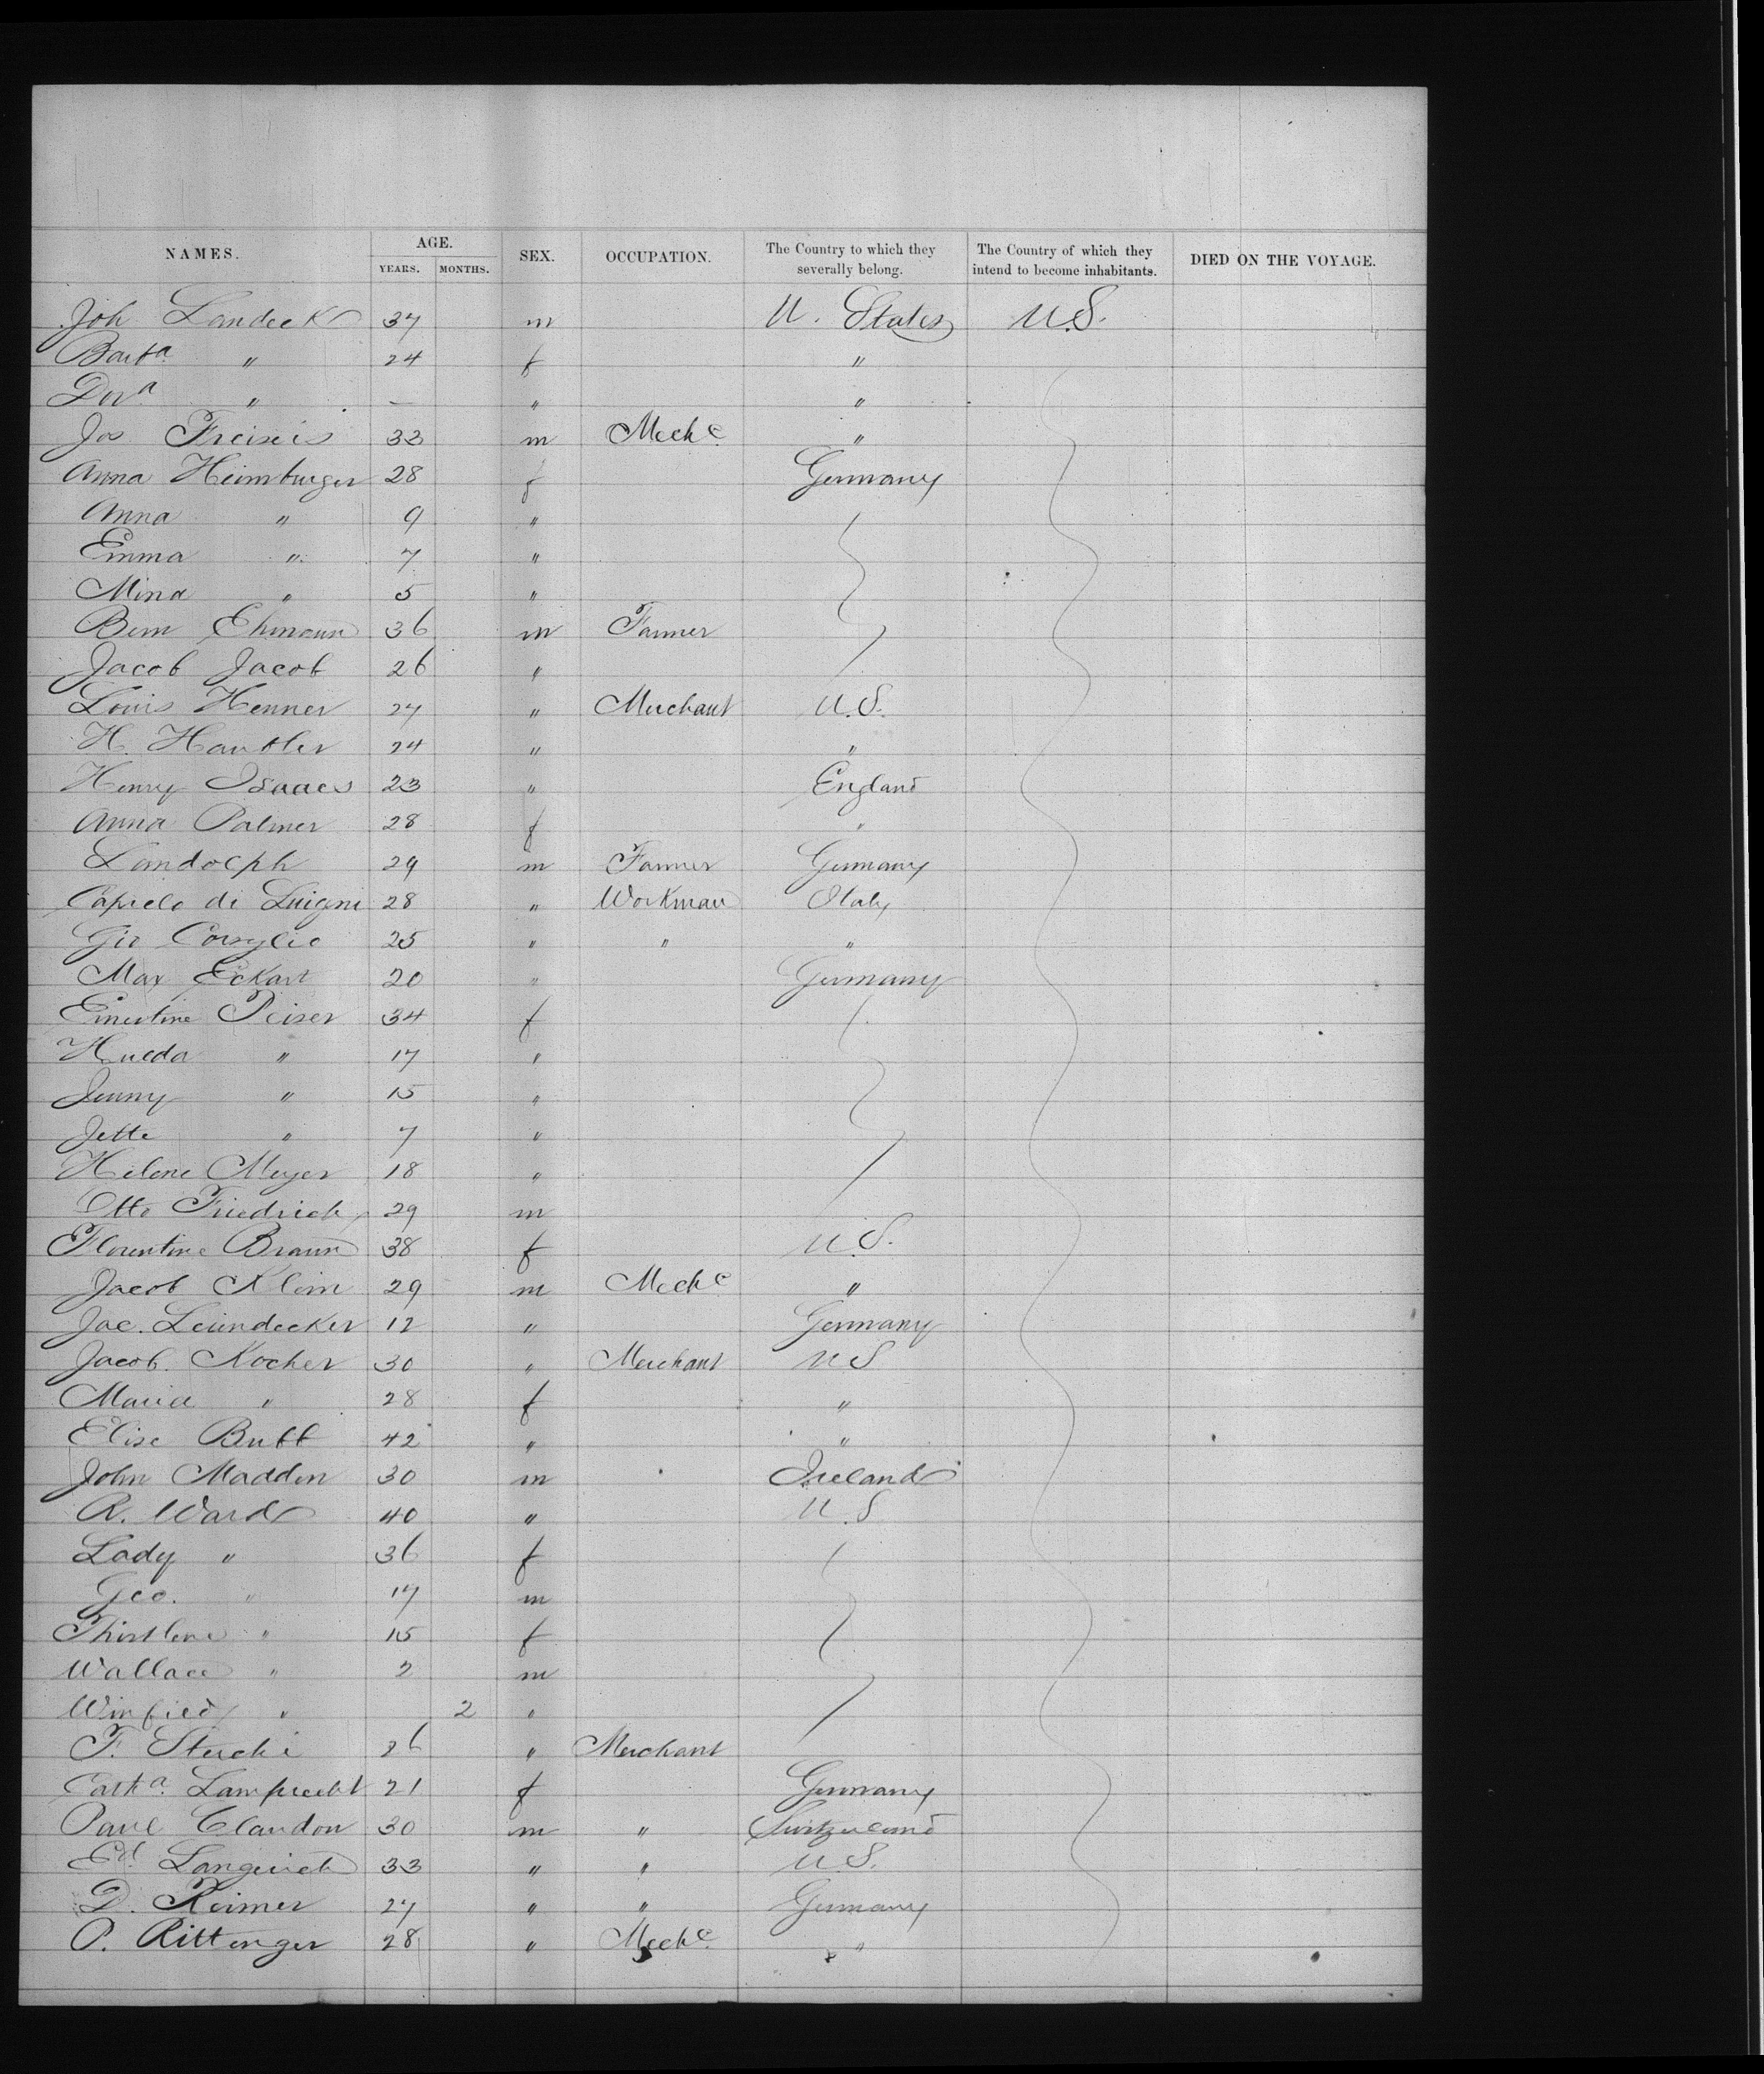 NAMES. AGE. SEX. OCCUPATION. The Country to which they severally belong. The Country of which they intend to become inhabitants. DIED ON THE VOYAGE.
YEARS. MONTHS.
Joh Landeck 37 m U. States U.S.
Barba " 24 f "
Dora " — " "
Jos Freiseis 33 m Mechc "
Anna Heimburger 28 f Germany
Anna " 9 "
Emma " 7 "
Mina " 5 "
Bern Ehmann 36 m Farmer
Jacob Jacob 26 "
Louis Henner 27 " Merchant U.S.
H. Hantler 24 " "
Henry Isaacs 23 " England
Anna Palmer 28 f "
Landolph 29 m Farmer Germany
Capielo di Luigni 28 " Workman Italy
Gio 25 " " "
Max Eckart 20 " Germany
Ernestine Peiser 34 f
Hulda " 17 "
Jenny " 15 "
Jette " 7 "
Helene Meyer 18 "
Otto Friedrich 29 m
Florentine Braun 38 f U.S.
Jacob Klein 29 m Mechc "
Jac. Leiendecker 12 " Germany
Jacob Kocher 30 " Merchant U S
Maria " 28 f "
Elise Butt 42 " "
John Madden 30 m Ireland
R. Ward 40 " U.S
Lady " 36 f
Geo. " 17 m
" 15 f
Wallace " 2 m
Winfield " 2 "
F. Stucki 26 " Merchant
Catha. Lamprecht 21 f Germany
Paul Claudon 30 m " Switzerland
Ed 33 " " U.S.
D. Reimer 27 " " Germany
P. Rittenger 28 " Mechc. "